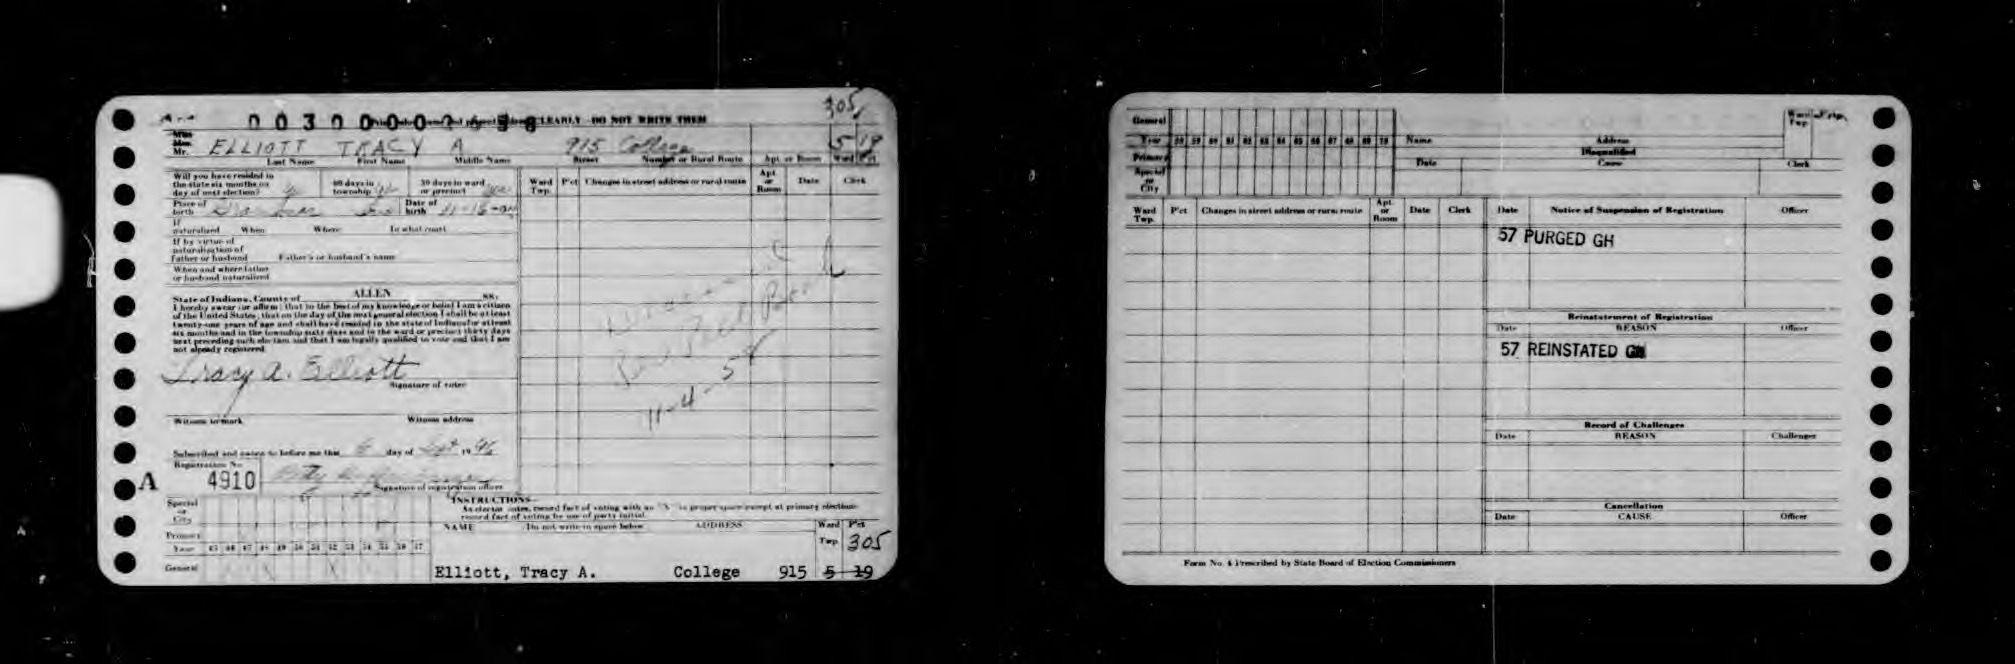 305
CLEARLY - DO NOT WRITE THEM
Miss
Mrs.
Mr. ELLIOTT TRACY A 915 College 5 19
Last Name First Name Middle Name Street Number or Rural Route Apt. or Room Ward P'ct
Will you have resided in
the state six months on
day of next election?
60 days in
township
30 days in ward
or precinct
Place of
birth
Date of
birth
If
naturalized When Where In what court
If by virtue of
naturalization of
Father or husband Father's or husband's name
When and where father
or husband naturalized
State of Indiana, County of ALLEN SS:
I hereby swear (or affirm) that to the best of my knowledge or belief I am a citizen
of the United States; that on the day of the next general election I shall be at least
twenty-one years of age and shall have resided in the state of Indiana for at least
six months and in the township sixty days and in the ward or precinct thirty days
next preceding such election and that I am legally qualified to vote and that I am
not already registered.
Tracy A. Elliott
Signature of voter
Witness to mark Witness address
Subscribed and sworn to before me this 6 day of Sept 19 46
Registration No.
A 4910
Signature of registration officer
Ward
Twp. P'ct Changes in street address or rural route Apt.
or
Room Date Clerk
11-4-58
INSTRUCTIONS
As elector votes, record fact of voting with an "X" in proper space except at primary elections
record fact of voting by use of party initial.
NAME Do not write in space below ADDRESS Ward P'ct
Twp. 305
Special
or
City
Primary
Year 45 46 47 48 49 50 51 52 53 54 55 56 57
General
Elliott, Tracy A. College 915 5 19
General
Year 58 59 60 61 62 63 64 65 66 67 68 69 70
Primary
Special
or
City
Name Address Ward
Twp.
Disqualified
Date Cause Clerk
Ward
Twp. P'ct Changes in street address or rural route Apt.
or
Room Date Clerk
Date Notice of Suspension of Registration Officer
57 PURGED GH
Reinstatement of Registration
Date REASON Officer
57 REINSTATED GH
Record of Challenges
Date REASON Challenger
Cancellation
Date CAUSE Officer
Form No. 4 Prescribed by State Board of Election Commissioners